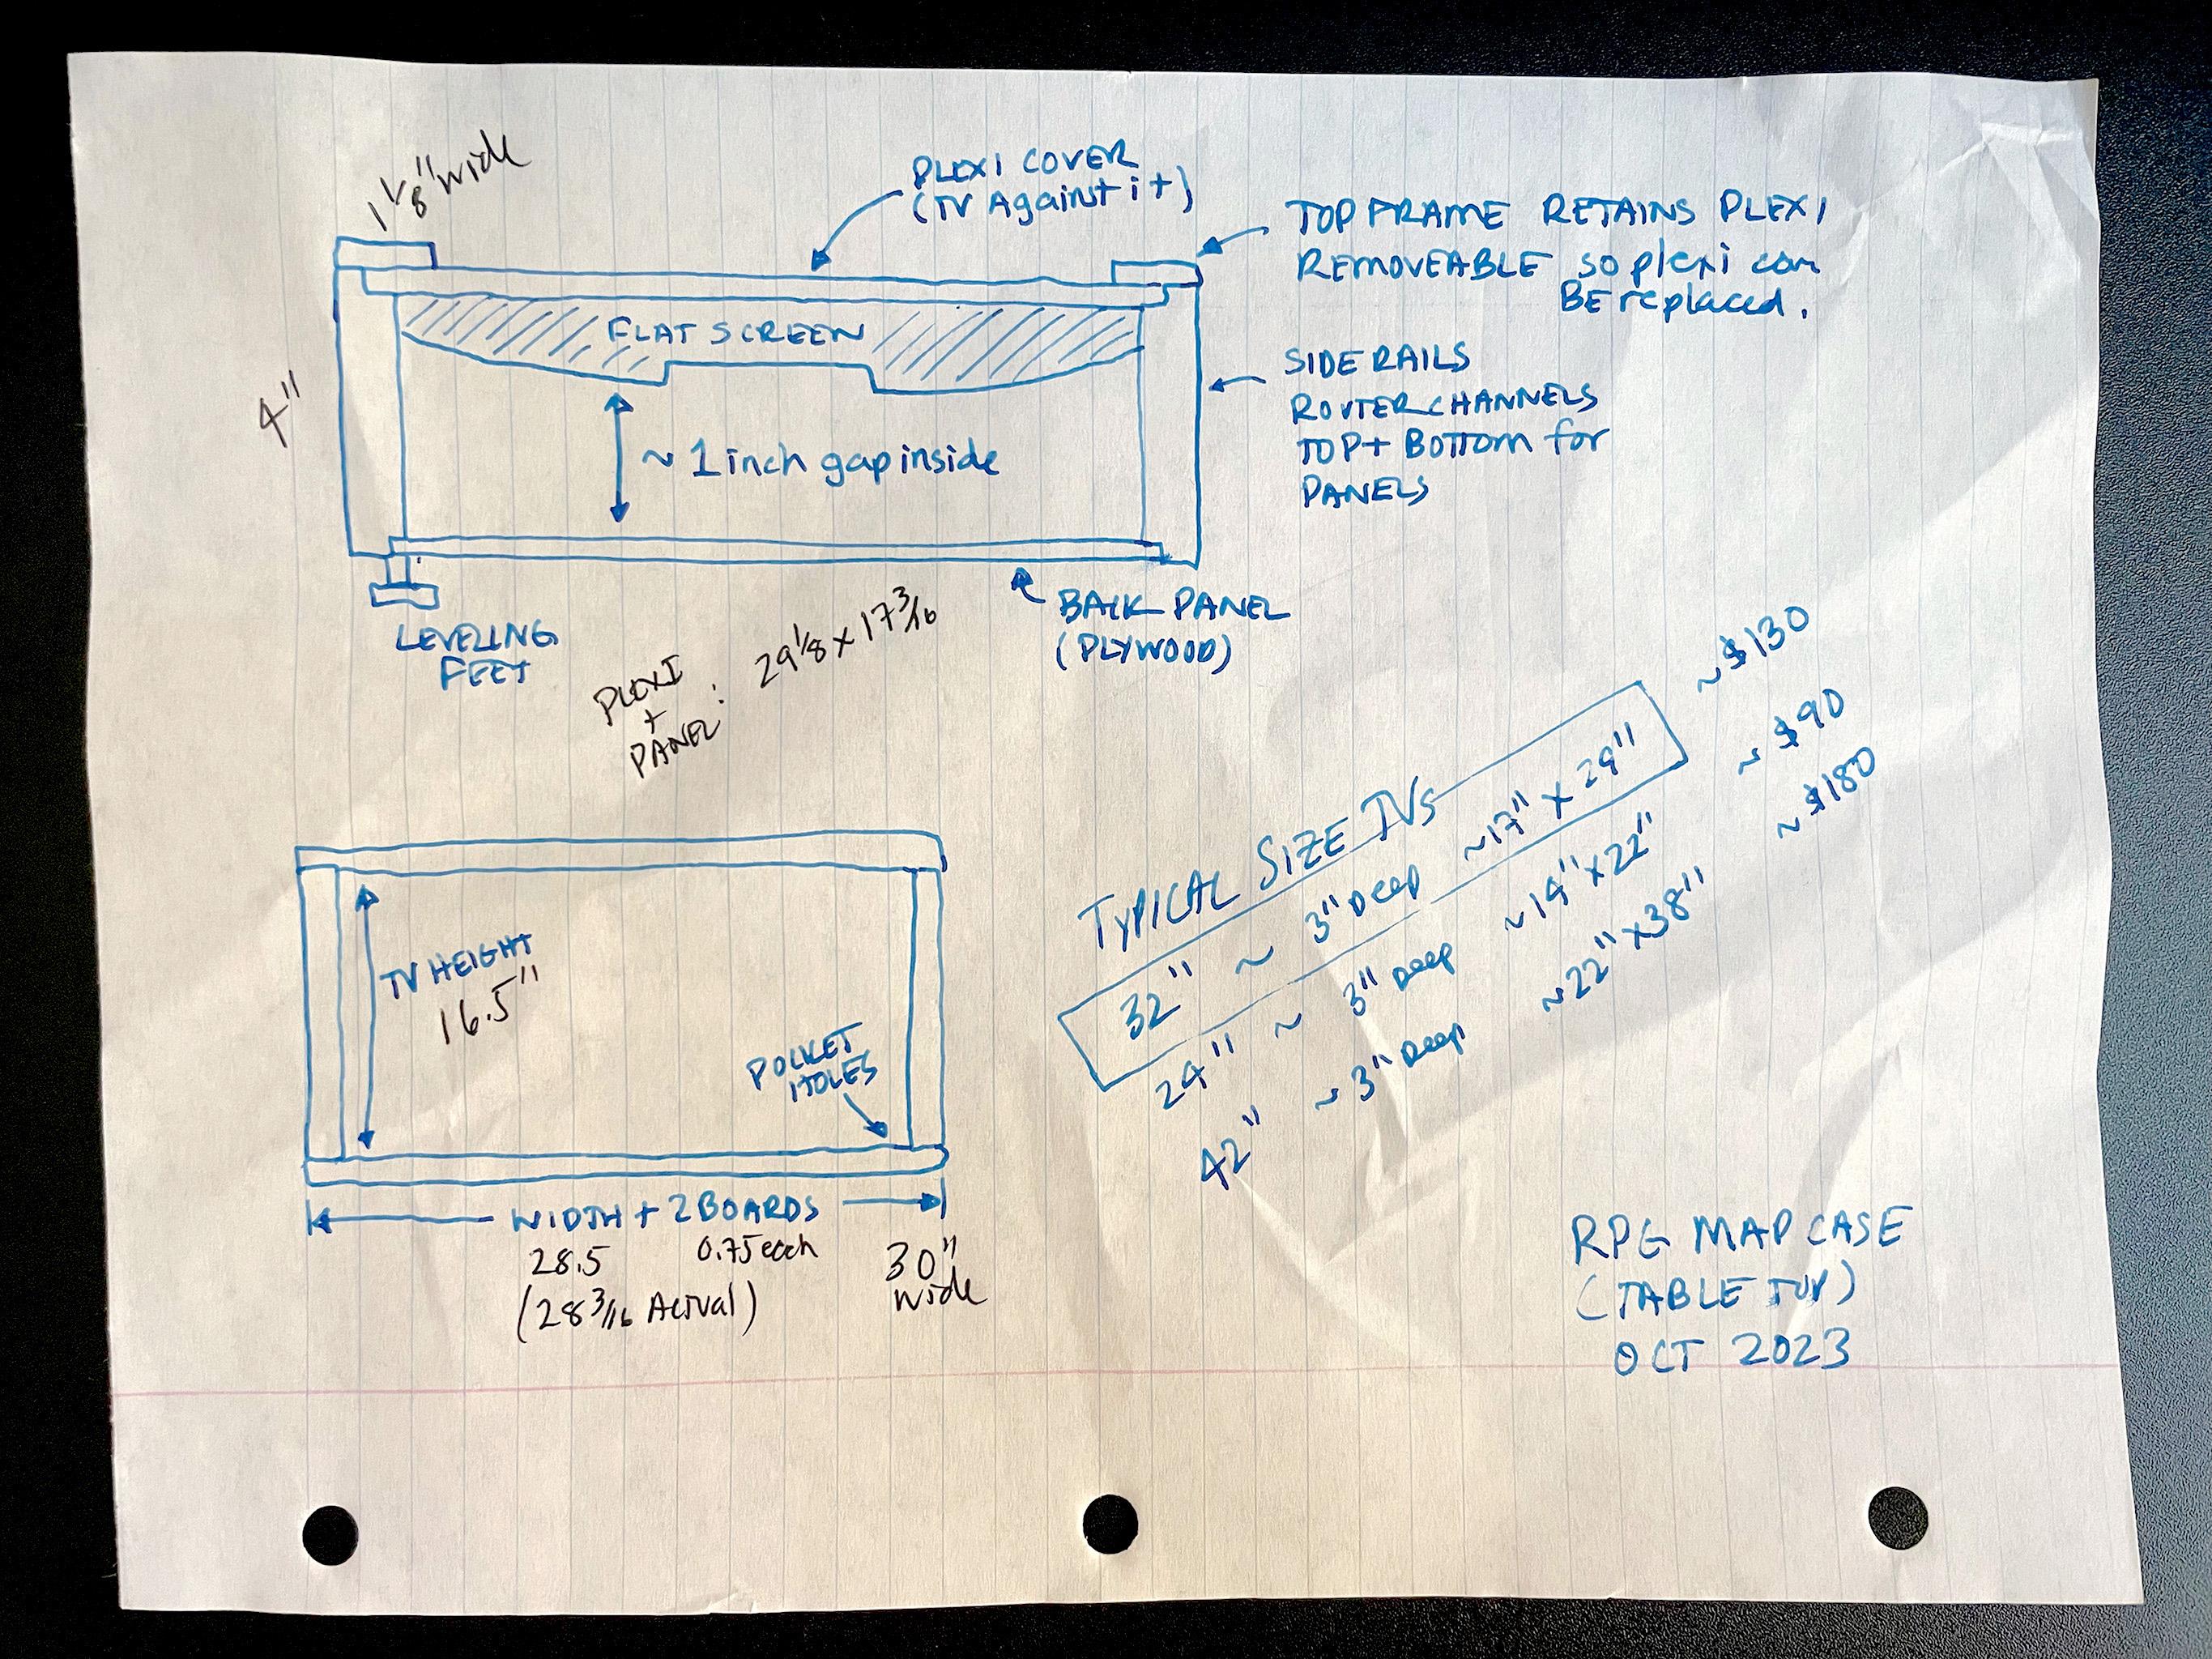 1 1/8" wide
PLEXI COVER
(TV Against it)
TOP FRAME RETAINS PLEXI
REMOVEABLE so plexi can
BE replaced.
FLAT SCREEN
4"
~ 1 inch gap inside
SIDE RAILS
ROUTER CHANNELS
TOP + BOTTOM for
PANELS
LEVELING
FEET
BACK PANEL
(PLYWOOD)
PLEXI
+
PANEL: 29 1/8 x 17 3/16
TYPICAL SIZE TVs
32" ~ 3" Deep ~17" x 29" ~$130
24" ~ 3" Deep ~14" x 22" ~$90
42" ~ 3" Deep ~22" x 38" ~$180
TV HEIGHT
16.5"
POCKET
HOLES
WIDTH + 2 BOARDS
28.5 0.75 each 30"
wide
(28 3/16 Actual)
RPG MAP CASE
(TABLE TOP)
OCT 2023